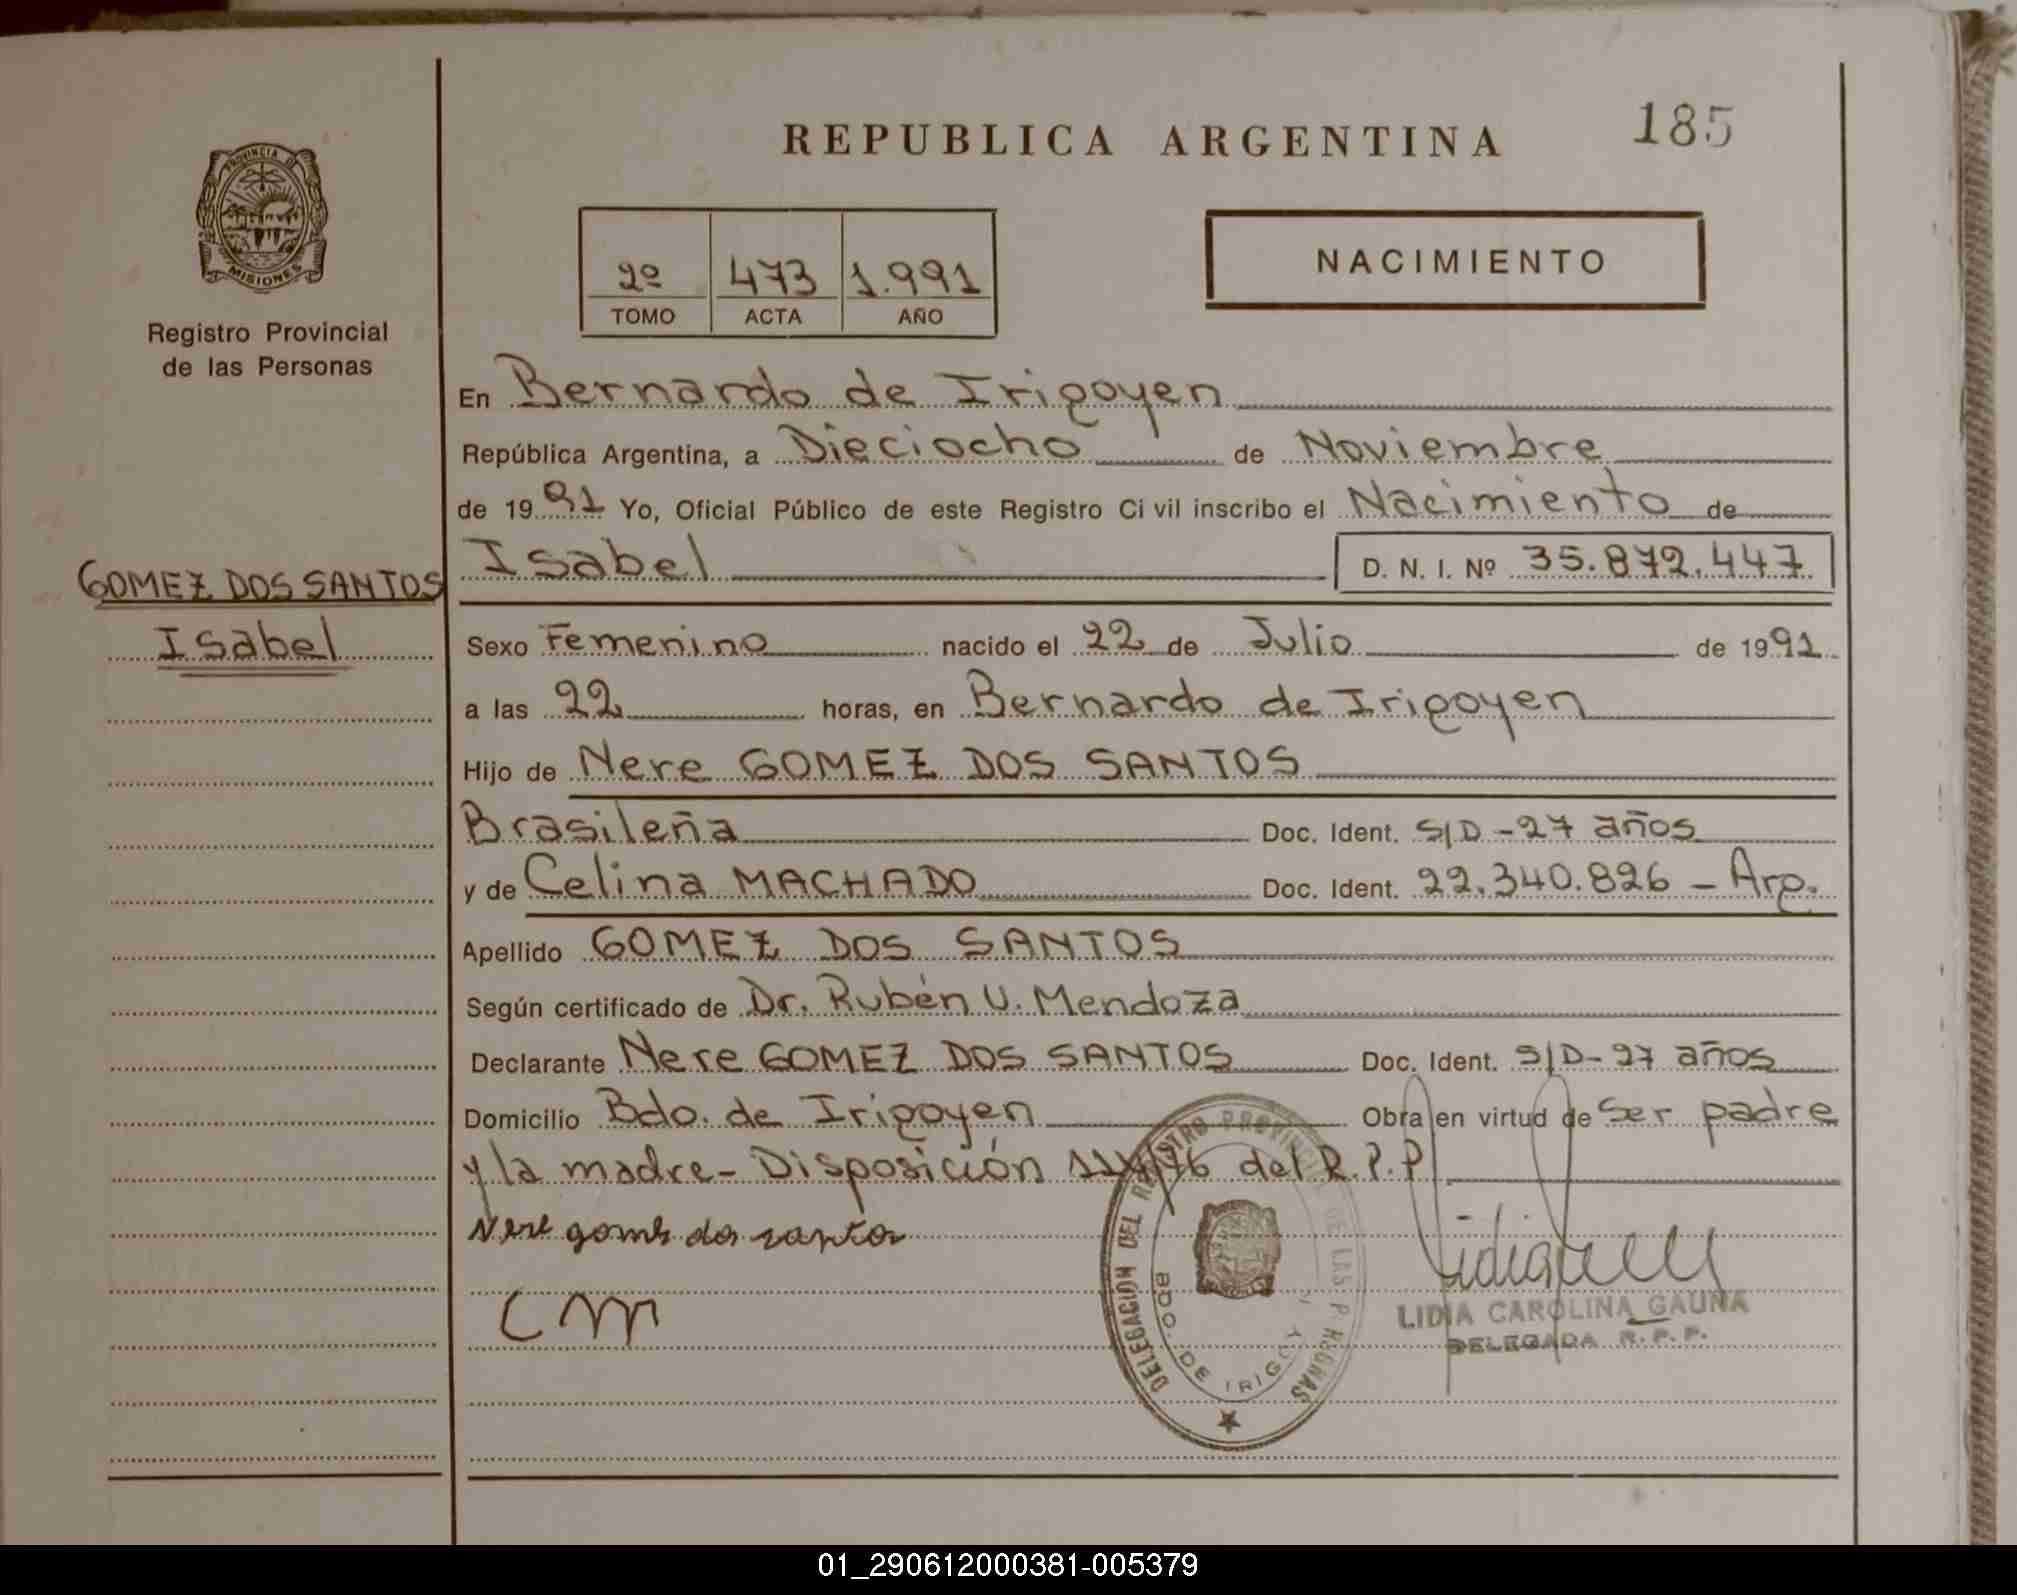 REPUBLICA ARGENTINA
185
PROVINCIA D
MISIONES
Registro Provincial
de las Personas
2º 473 1.991
TOMO ACTA AÑO
NACIMIENTO
En Bernardo de Irigoyen
República Argentina, a Dieciocho de Noviembre
de 1991 Yo, Oficial Público de este Registro Civil inscribo el Nacimiento de
Isabel D. N. I. Nº 35.872.447
GOMEZ DOS SANTOS
Isabel
Sexo Femenino nacido el 22 de Julio de 1991
a las 22 horas, en Bernardo de Irigoyen
Hijo de Nere GOMEZ DOS SANTOS
Brasileña Doc. Ident. S/D - 27 años
y de Celina MACHADO Doc. Ident. 22.340.826 - Arg.
Apellido GOMEZ DOS SANTOS
Según certificado de Dr. Rubén U. Mendoza
Declarante Nere GOMEZ DOS SANTOS Doc. Ident. S/D - 27 años
Domicilio Bdo. de Irigoyen Obra en virtud de Ser padre
y la madre - Disposición del R.P.P.
Nere gomes dos santos
CM
DELEGACIÓN DEL REGISTRO PROVINCIAL DE LAS PERSONAS
BDO. DE IRIGOY
LIDIA CAROLINA GAUNA
DELEGADA R. P. P.
01_290612000381-005379